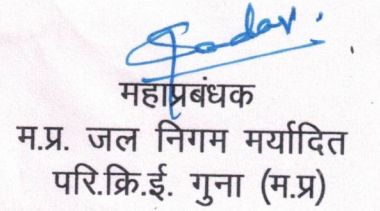 महाप्रबंधक
म.प्र. जल निगम मर्यादित
परि.क्रि.ई. गुना (म.प्र)